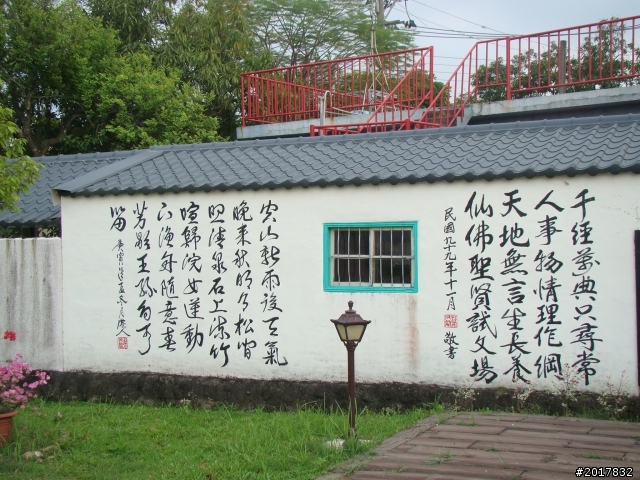 千經萬典只尋常
人事物情理作綱
天地無言生長養
仙佛聖賢試文場
民國九十九年十一月
敬書
空山新雨後天氣
晚来秋明月松間
照清泉石上流竹
喧歸浣女蓮動
下漁舟隨意春
芳歇王孫自可
留
#2017832